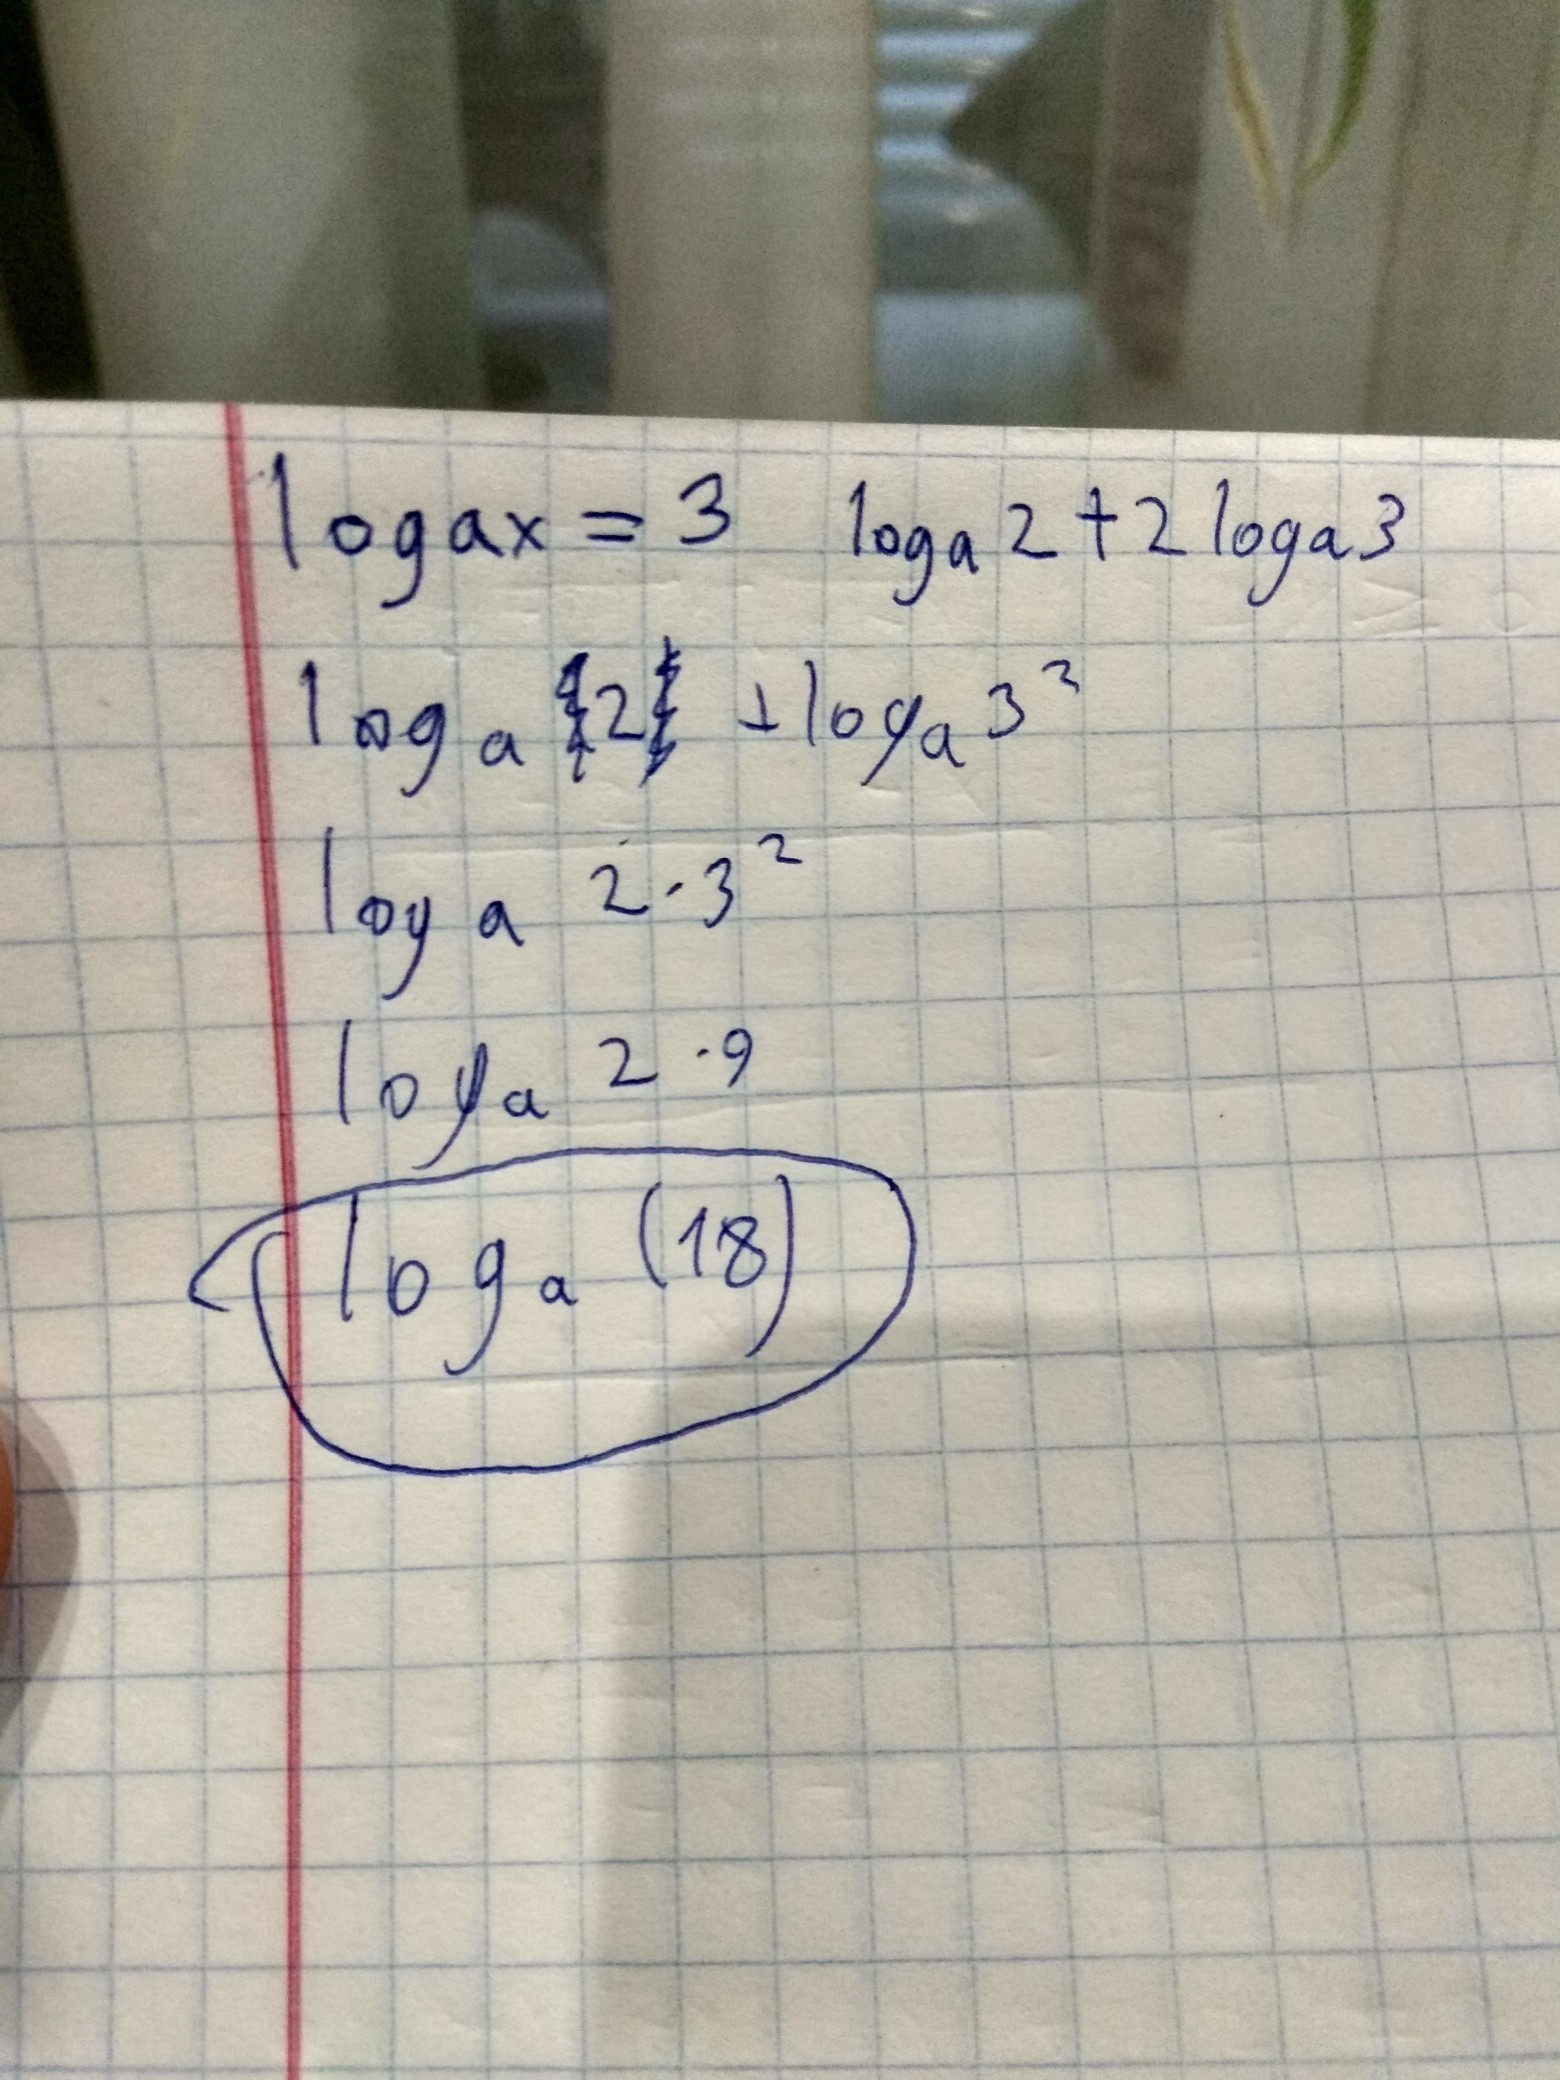 logax = 3 logₐ2 + 2 logₐ3
logₐ 2 + logₐ 3²
logₐ 2·3²
logₐ 2·9
logₐ (18)